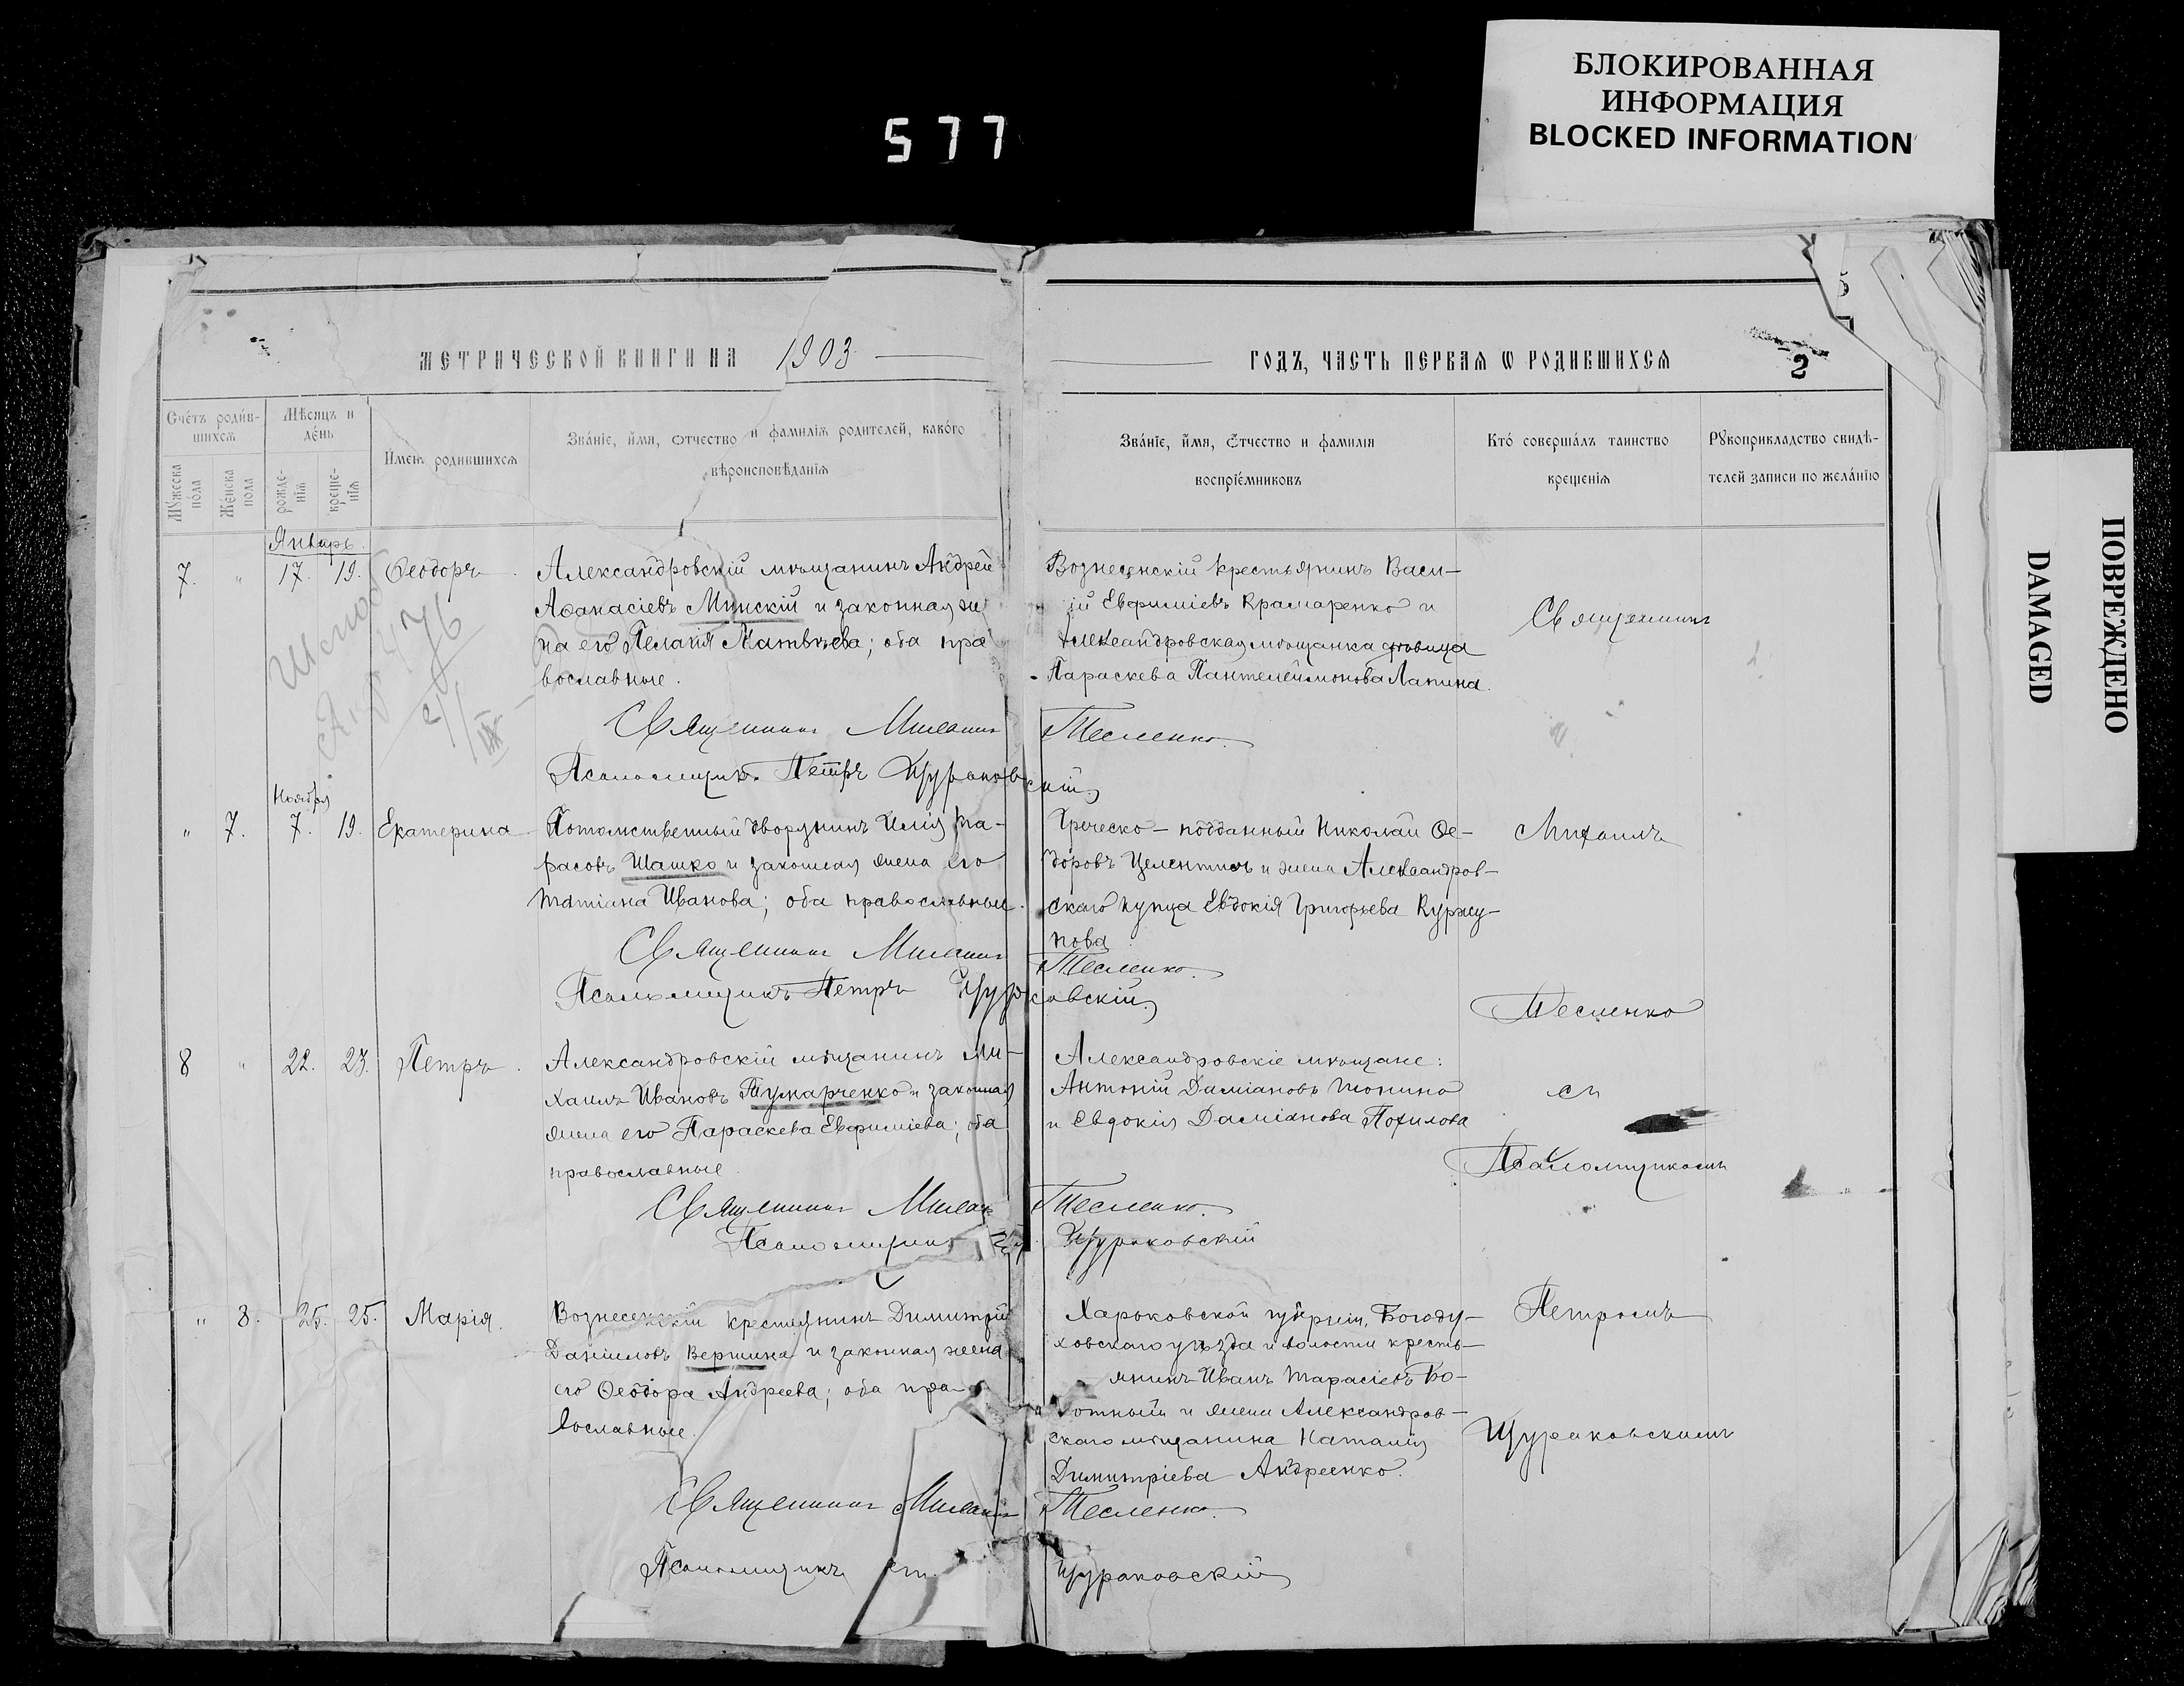 БЛОКИРОВАННАЯ
ИНФОРМАЦИЯ
BLOCKED INFORMATION
577
ПОВРЕЖДЕНО
DAMAGED
МЕТРИЧЕСКОЙ КНИГИ НА 1903
ГОДЪ, ЧАСТЬ ПЕРВАЯ Ѡ РОДИВШИХСЯ
2
Счетъ родив-
шихся
Мѣсяцъ и
день
Мужеска
пола
Женска
пола
рожде-
нія
креще-
нія
Имена родившихся
Званіе, имя, отчество и фамилія родителей, какого
вѣроисповѣданія
Званіе, имя, отчество и фамилія
воспріемниковъ
Кто совершалъ таинство
крещенія
Рукоприкладство свидѣ-
телей записи по желанію
Январь.
7. " 17. 19. Ѳеодоръ
Александровскій мѣщанинъ Андрей
Аѳанасіевъ Минскій и законная же
на его Пелагія Матвѣева; оба пра
вославные.
Священникъ Михаилъ
Псаломщикъ Петръ Щураковскій
Вознесенскій крестьянинъ Васи-
ій Евфиміевъ Крамаренко и
Александровская мѣщанка дѣвица
Параскева Пантелеймонова Лапина.
Тесленко.
Священникъ
476
Ноября
" 7. 7. 19. Екатерина
Потомственный дворянинъ Илія Та-
расовъ Шашко и законная жена его
Татіана Иванова; оба православные.
Священникъ Михаилъ
Псаломщикъ Петръ Щураковскій
Греческо-подданный Николай Ѳе-
доровъ и жена Александров-
скаго купца Евдокія Григорьева Куржу-
пова
Тесленко.
Михаилъ
Тесленко
8 " 22. 23. Петръ.
Александровскій мѣщанинъ Ми-
хаилъ Ивановъ Тумарченко и законная
жена его Параскева Евфиміева; оба
православные.
Священникъ Михаилъ
Псаломщикъ
Александровскіе мѣщане:
Антоній Даміановъ Тонино
и Евдокія Даміанова Похилова
Тесленко.
Щураковскій
съ
Псаломщикомъ
" 8. 25. 25. Марія.
Вознесенскій крестьянинъ Димитрій
Даніиловъ Вершина и законная жена
его Ѳеодора Андреева; оба пра-
вославные.
Священникъ Михаилъ
Псаломщикъ
Харьковской губерніи, Богоду-
ховскаго уѣзда и волости кресть-
янинъ Иванъ Тарасіевъ Бо-
отный и жена Александров-
скаго мѣщанина Наталія
Димитріева Андреенко.
Тесленко.
Щураковскій
Петромъ
Щураковскимъ